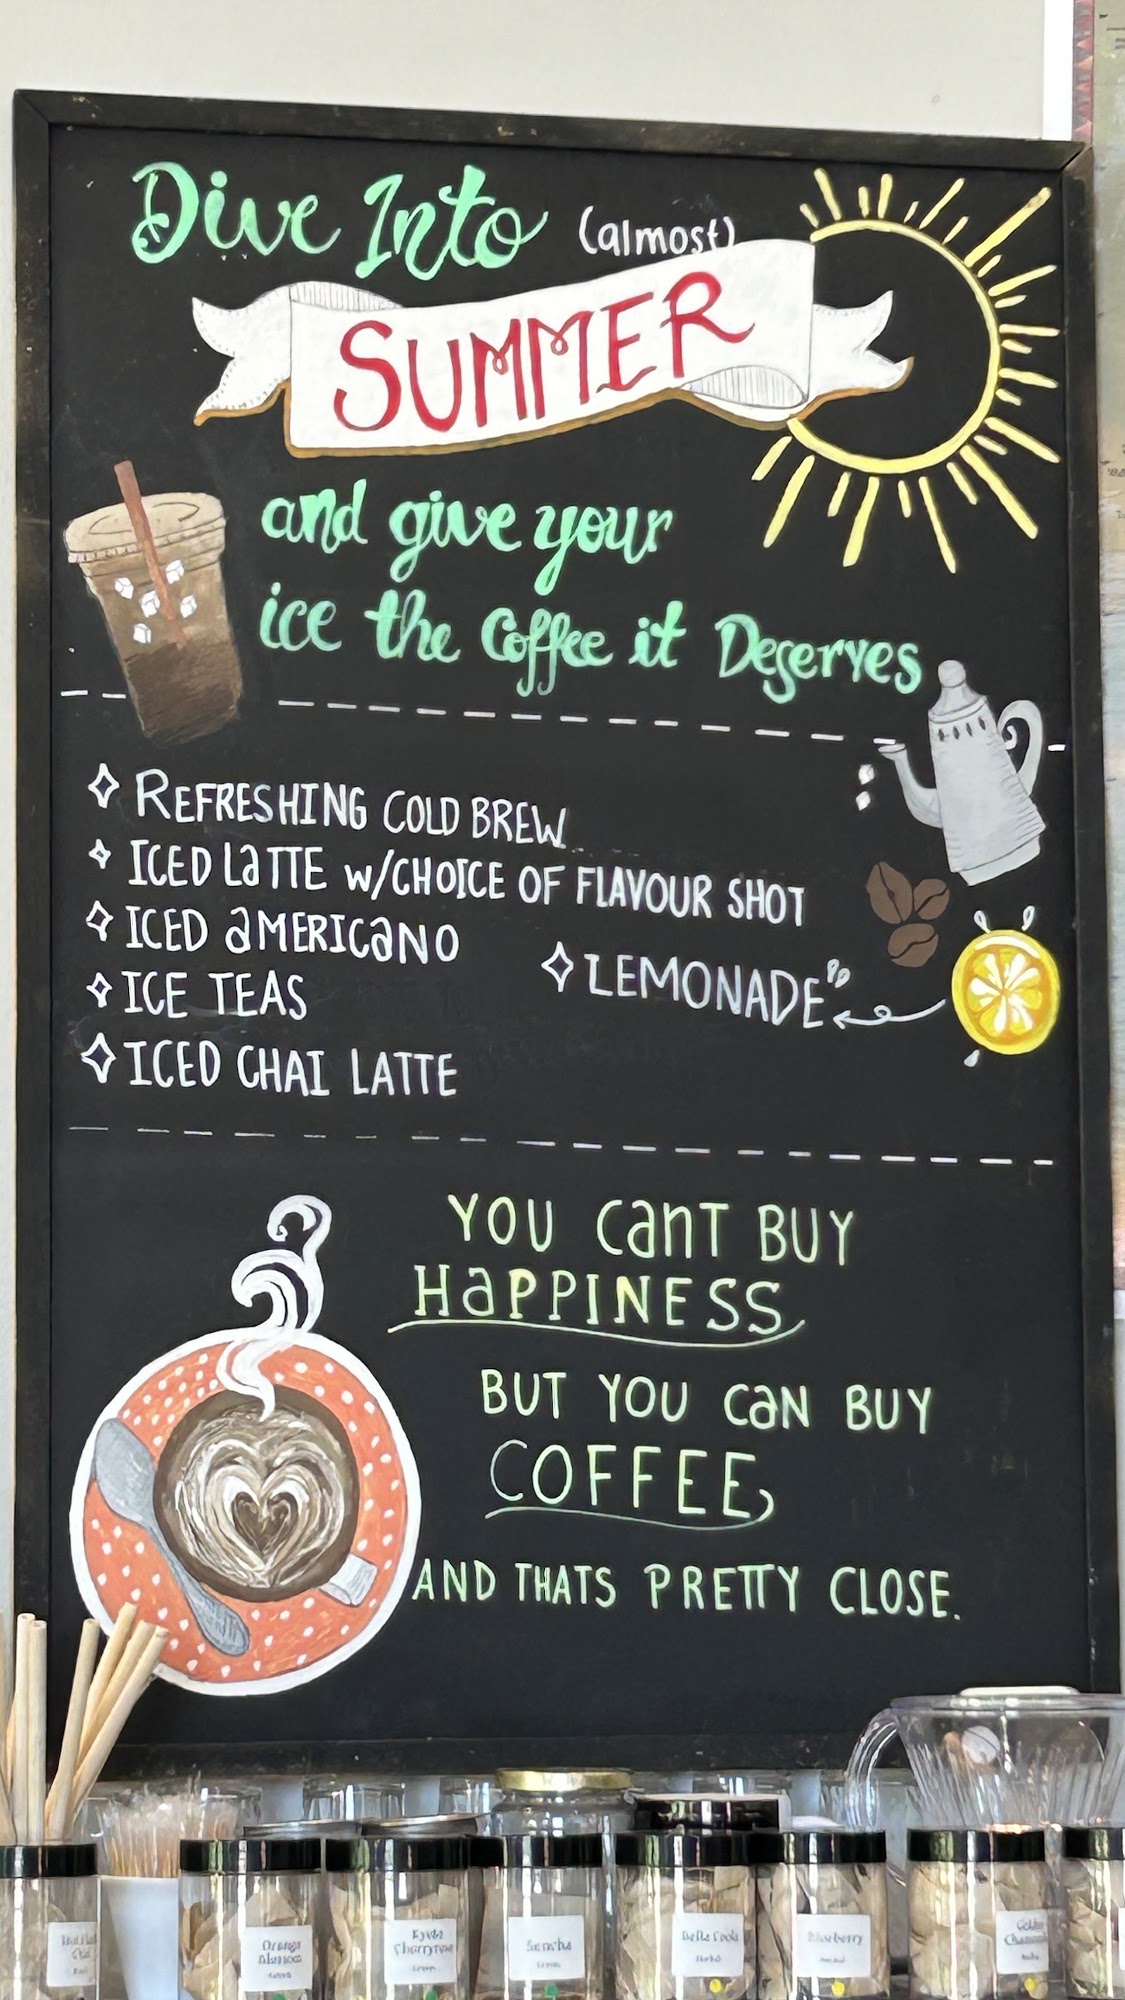 Dive Into (almost)
SUMMER
and give your
ice the Coffee it Deserves
REFRESHING COLD BREW
ICED LaTTE w/CHOICE OF FLAVOUR SHOT
ICED aMERICaNO
LEMONADE
ICE TEAS
ICED CHAI LATTE
YOU CanT BUY
HaPPINESS
BUT YOU CaN BUY
COFFEE
AND THATS PRETTY CLOSE.
Orange
Sencha
Blueberry